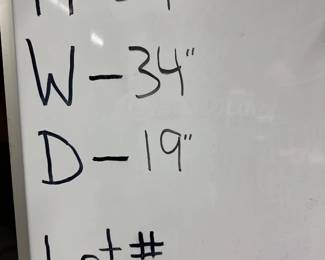 W - 34"
D - 19"
Lot #